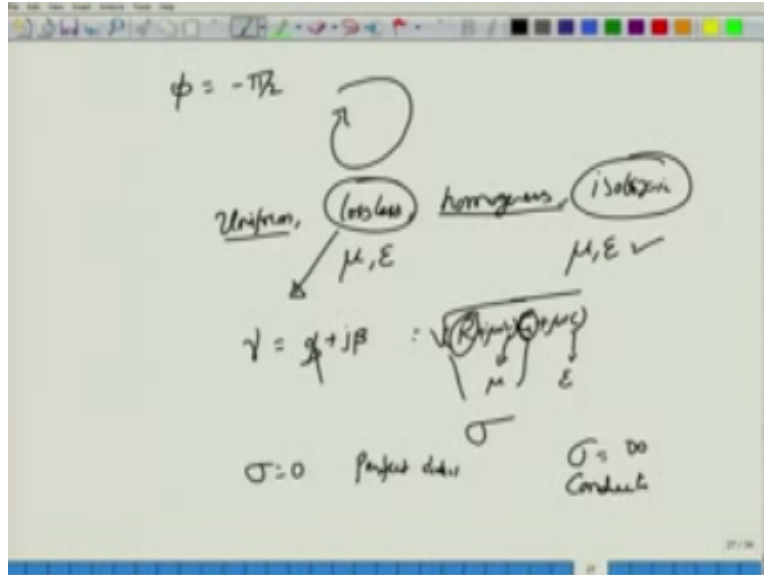 φ = -π/2
Uniform, lossless, homogenous, isotropic
μ, ε μ, ε ✓
γ = α + jβ = √(R+jωL)(G+jωC)
μ ε
σ
σ=0 Perfect σ = ∞
Conduct
27 / 34